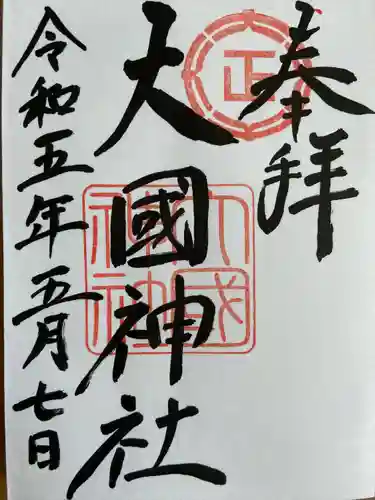 奉拝
正
大國神社
大国神社
令和五年五月七日